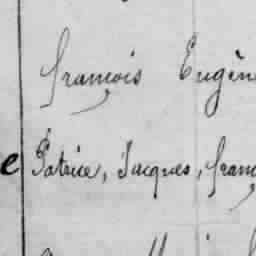 François Eugèn
e Patrice, Jacques, Franç